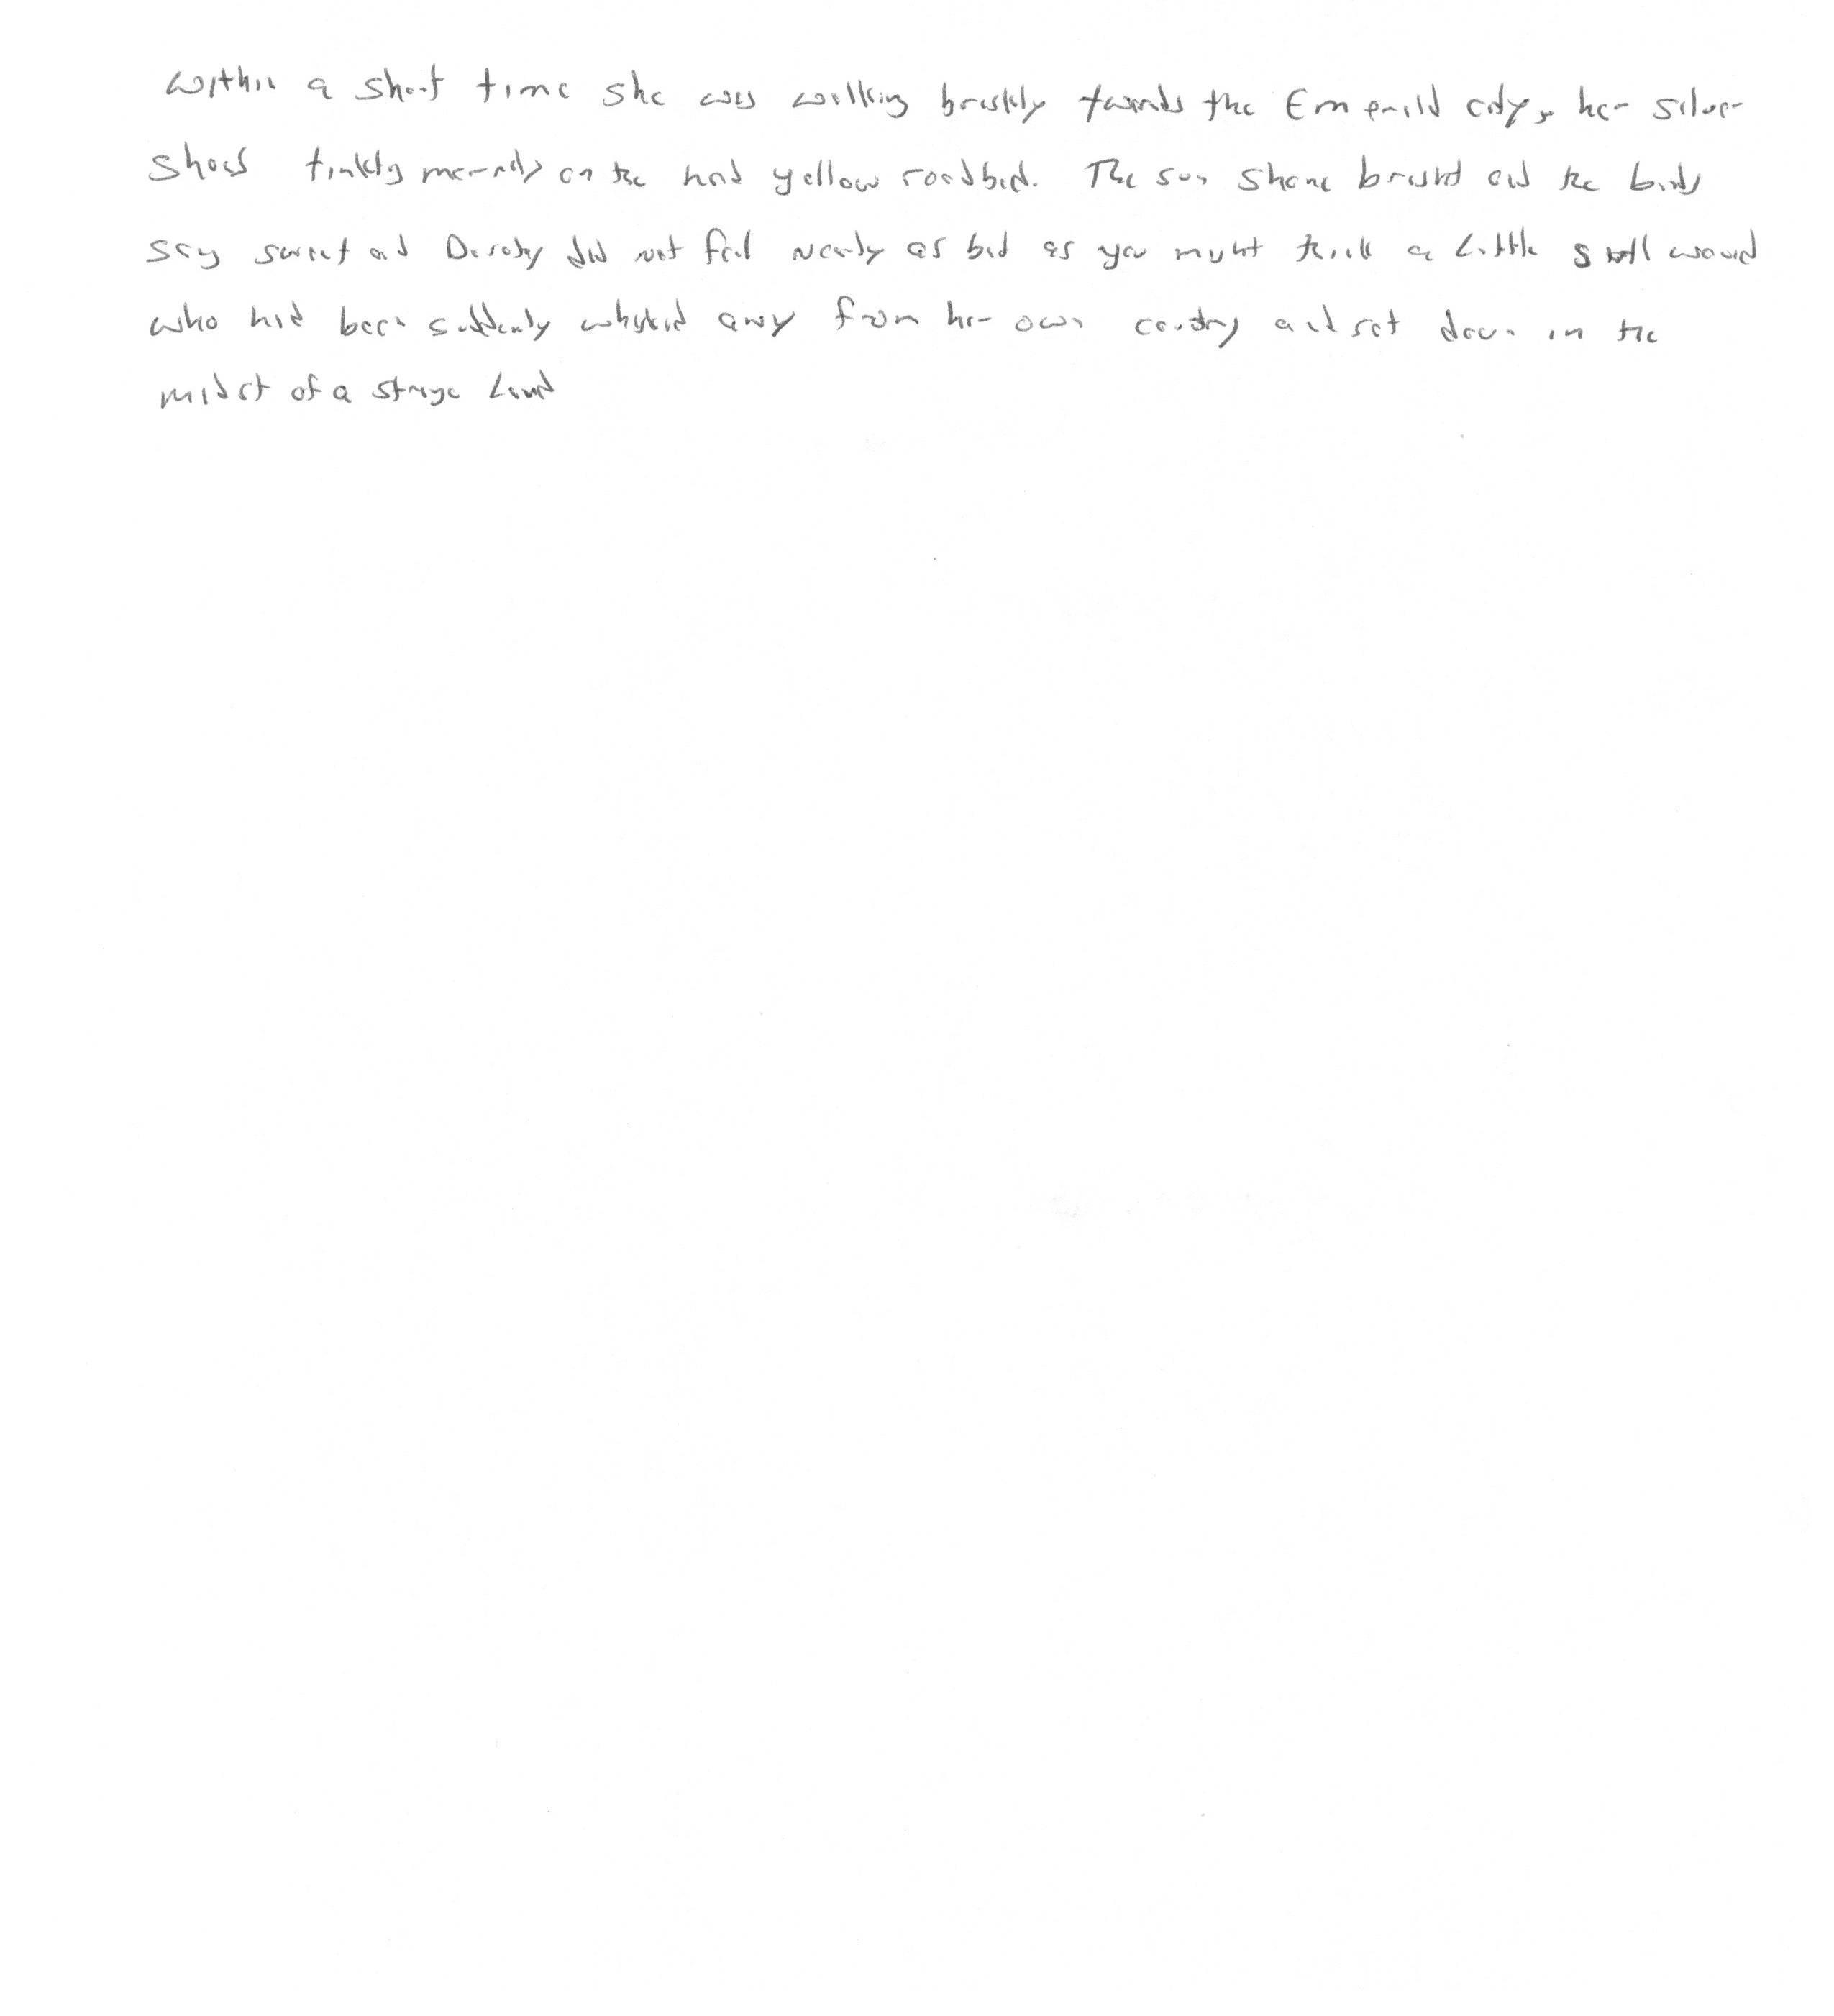 Within a short time she was walking briskly towards the Emerald City, her silver
shoes tinkling merrily on the hard yellow roadbed. The sun shone bright and the birds
sang sweet and Dorothy did not feel nearly as bad as you might think a little small would
who had been suddenly whisked away from her own country and set down in the
midst of a strange land